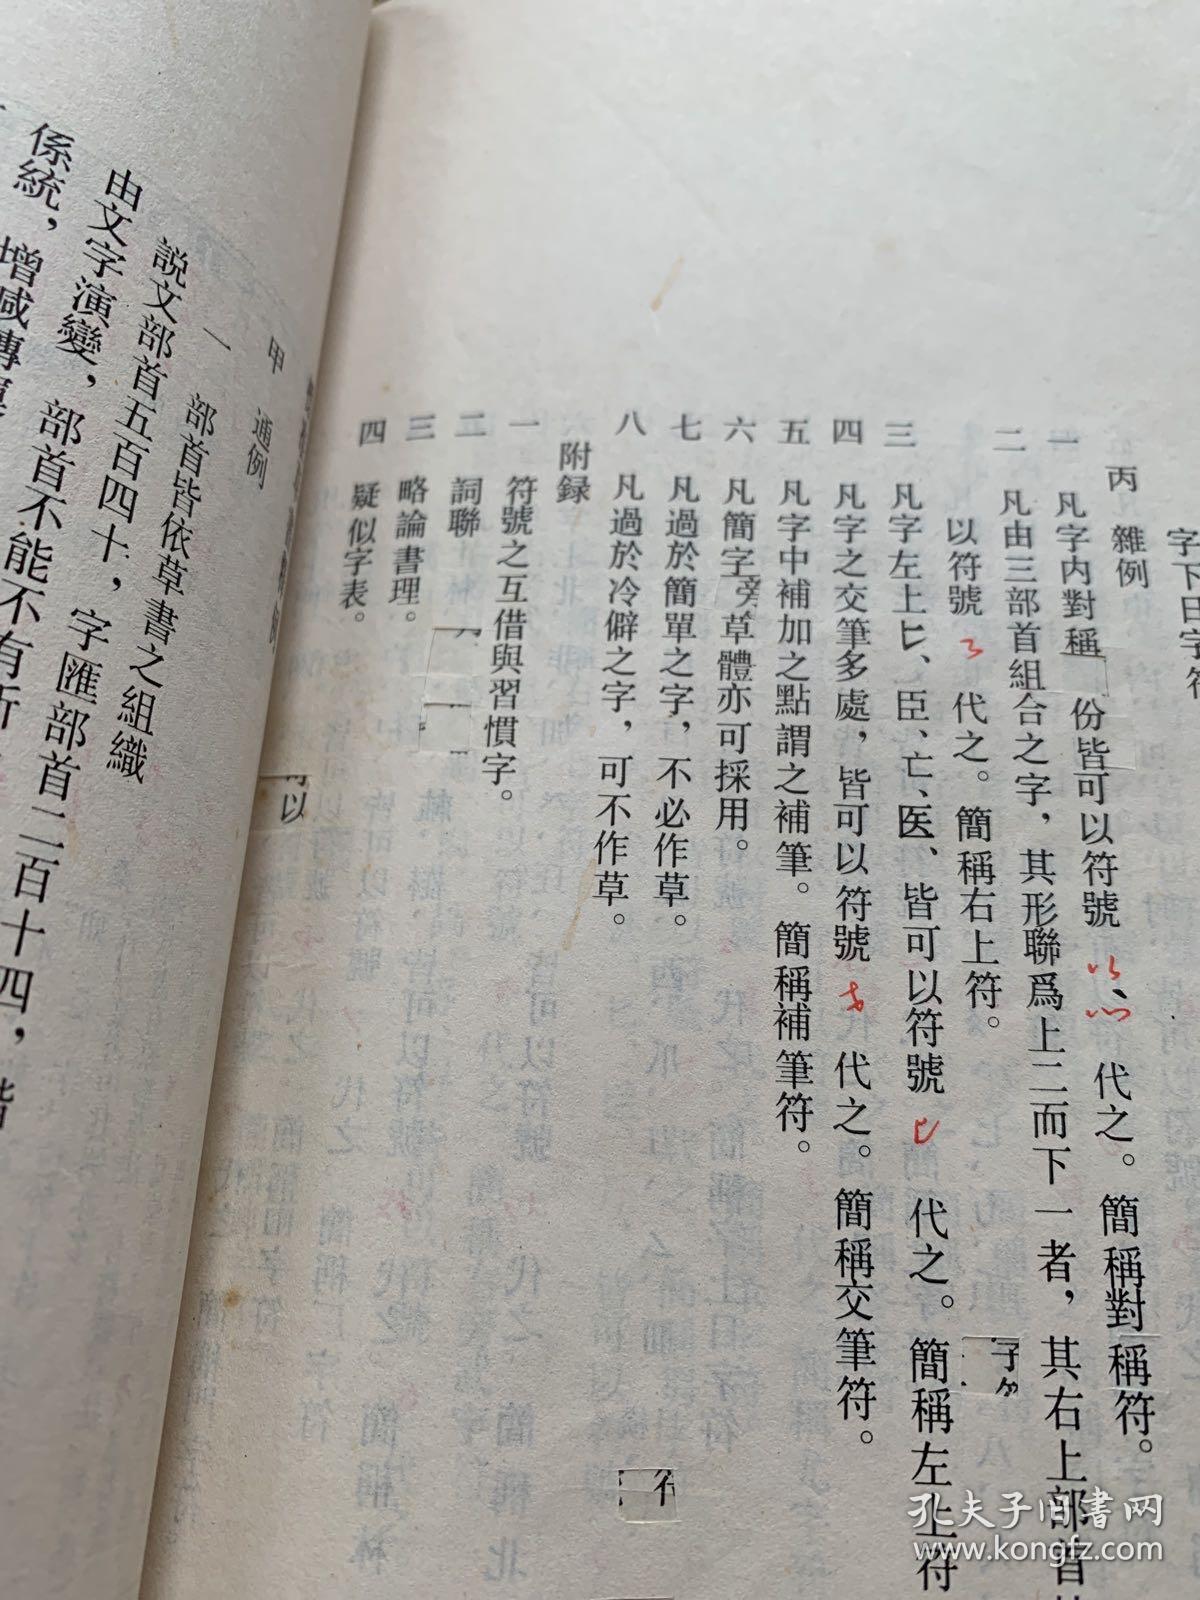 字下日字符
丙 雜例
一 凡字內對稱 份皆可以符號 、 代之。簡稱對稱符。
二 凡由三部首組合之字，其形聯爲上二而下一者，其右上部首
以符號 代之。簡稱右上符。
三 凡字左上匕、臣、亡、医、皆可以符號 代之。簡稱左上符
四 凡字之交筆多處，皆可以符號 代之。簡稱交筆符。
五 凡字中補加之點謂之補筆。簡稱補筆符。
六 凡簡字旁草體亦可採用。
七 凡過於簡單之字，不必作草。
八 凡過於冷僻之字，可不作草。
附録
一 符號之互借與習慣字。
二 詞聯
三 略論書理。
四 疑似字表。
符
甲 通例
一 部首皆依草書之組織
説文部首五百四十，字匯部首二百十四，皆
由文字演變，部首不能不有所
係統，增减
可以
孔夫子旧書网
www.kongfz.com